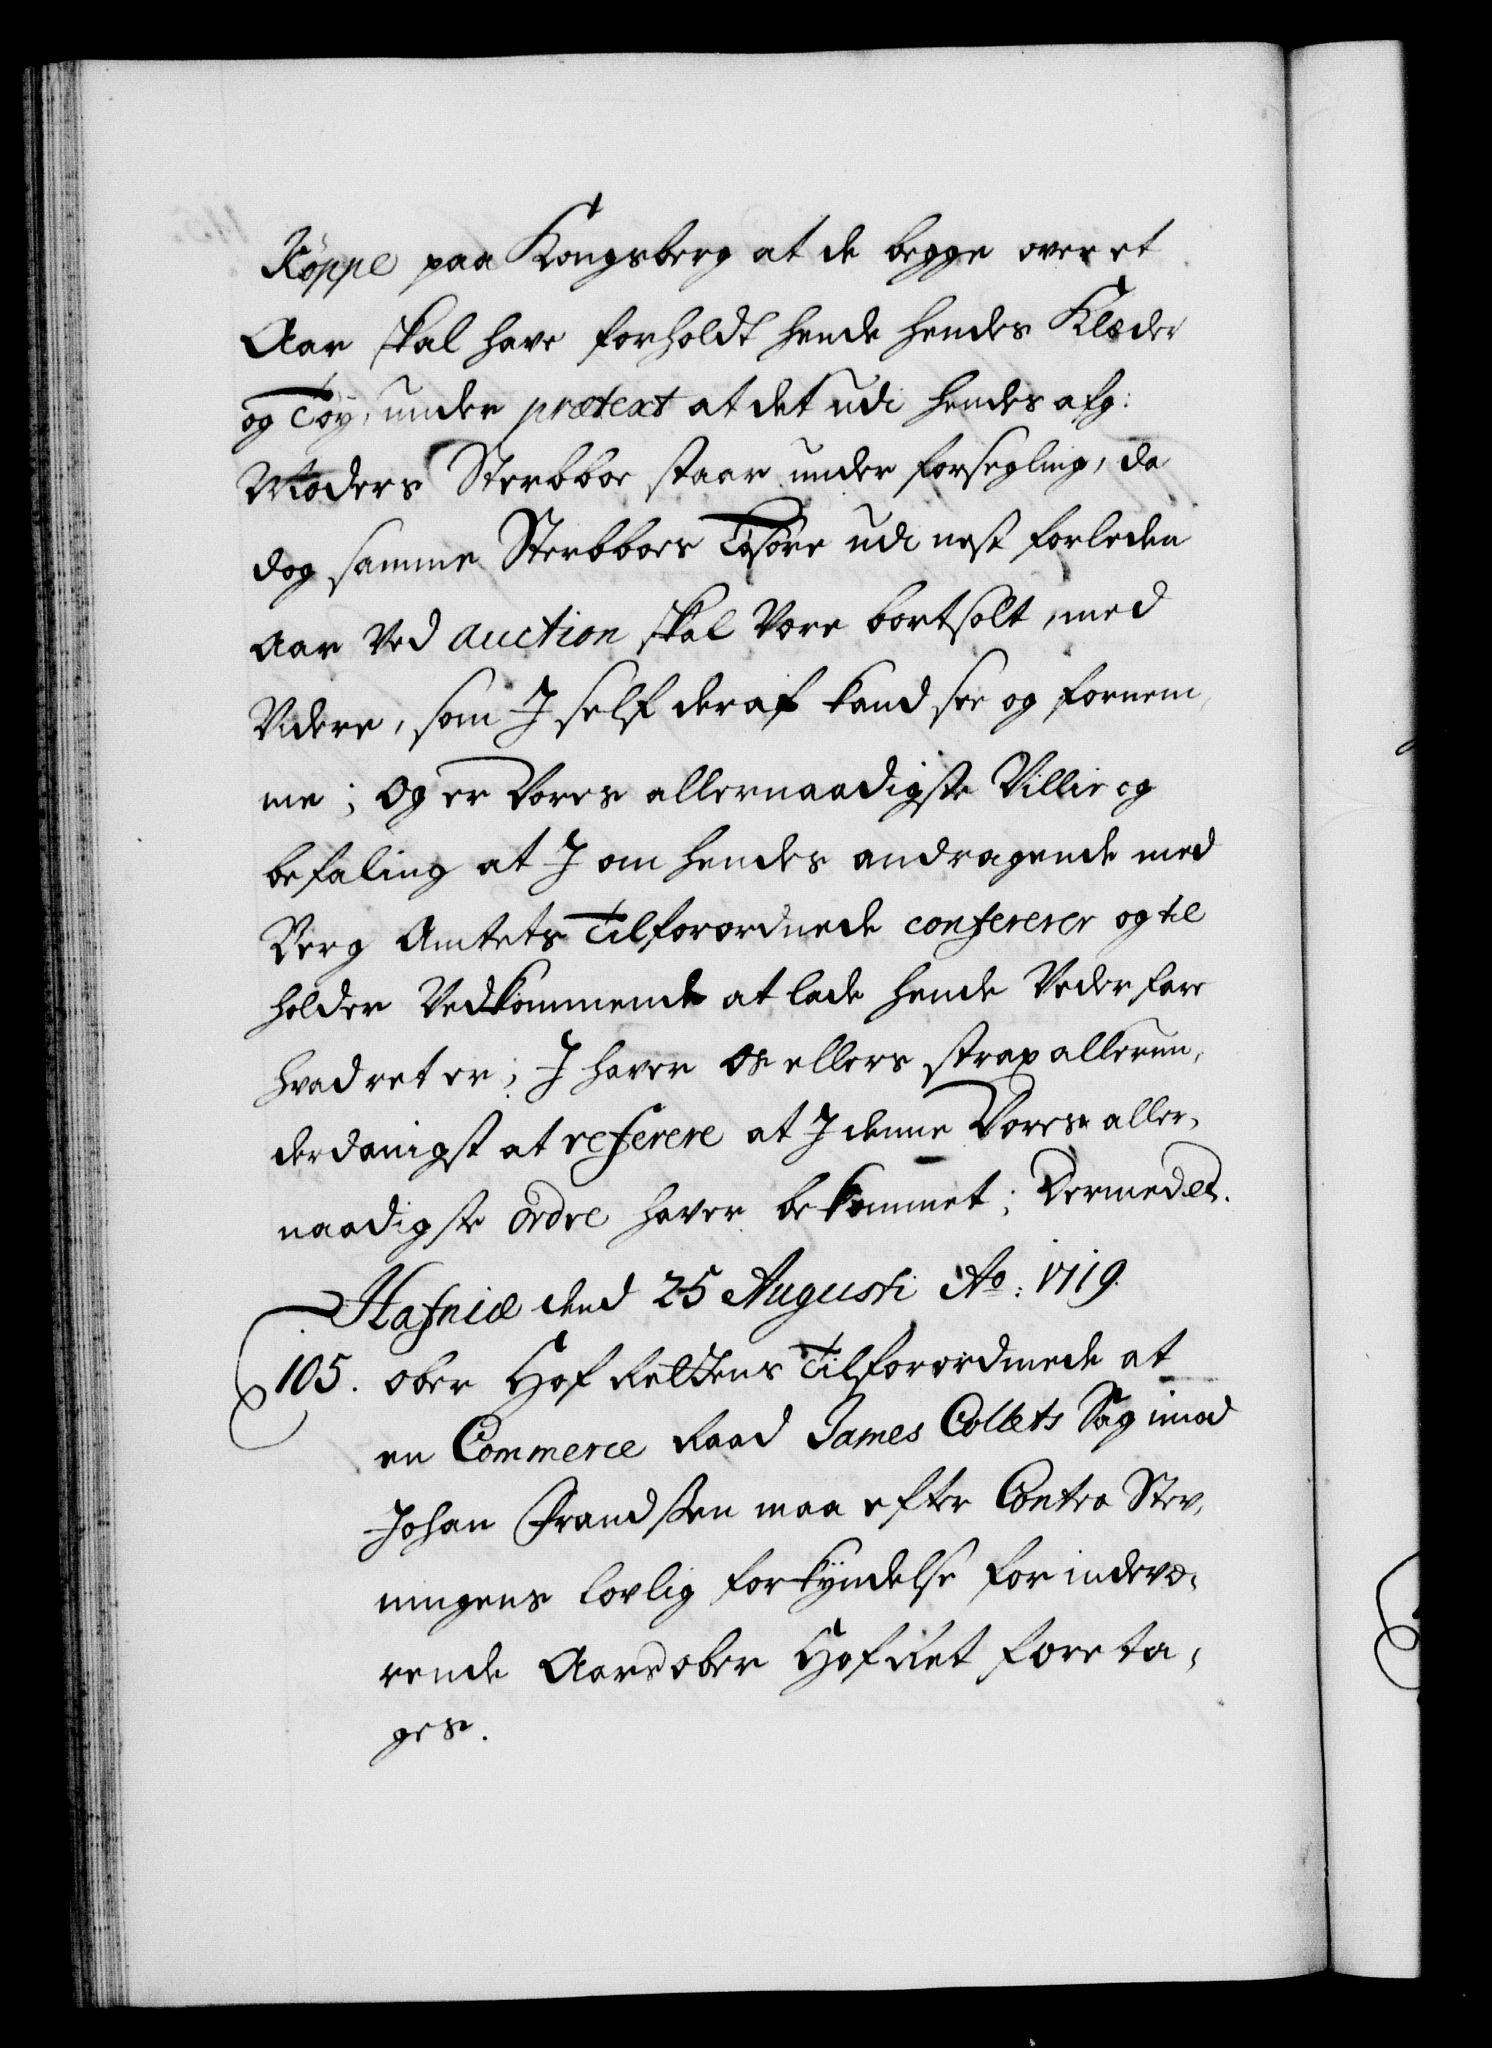 Köppe paa Kongsberg at de begge over et
Aar skal have forholdt hende hendes Klæder
og Töy, under prætext at det udi hendes afg:
Moders Sterbboe staar under forsegling, da
dog samme Sterbboes Tosöre udi nest forleden
Aar Ved auction skal Være bortsolt, med
Videre, som I self deraf kand see og fornem,
me; Og er Vores allernaadigste Villie og
befaling at I om hendes andragende med
Berg Amtets Tilforordnede confererer og til
holder Vedkommende at lade hende Vederfare
hvad ret er; I haver Os ellers strax allerun,
derdanigst at referere at I denne Vores aller,
naadigste ordre haver bekommet; Dermed etc.
Hafniæ dend 25 Augusti Ao: 1719.
105. Ober Hof Rettens Tilforordnede at
en Commerce Raad James Collets Sag imod
Johan Frandssen maa efter Contra Stev,
ningens lovlig forkyndelse for indevæ,
rende Aars Ober HofRet foreta,
ges.